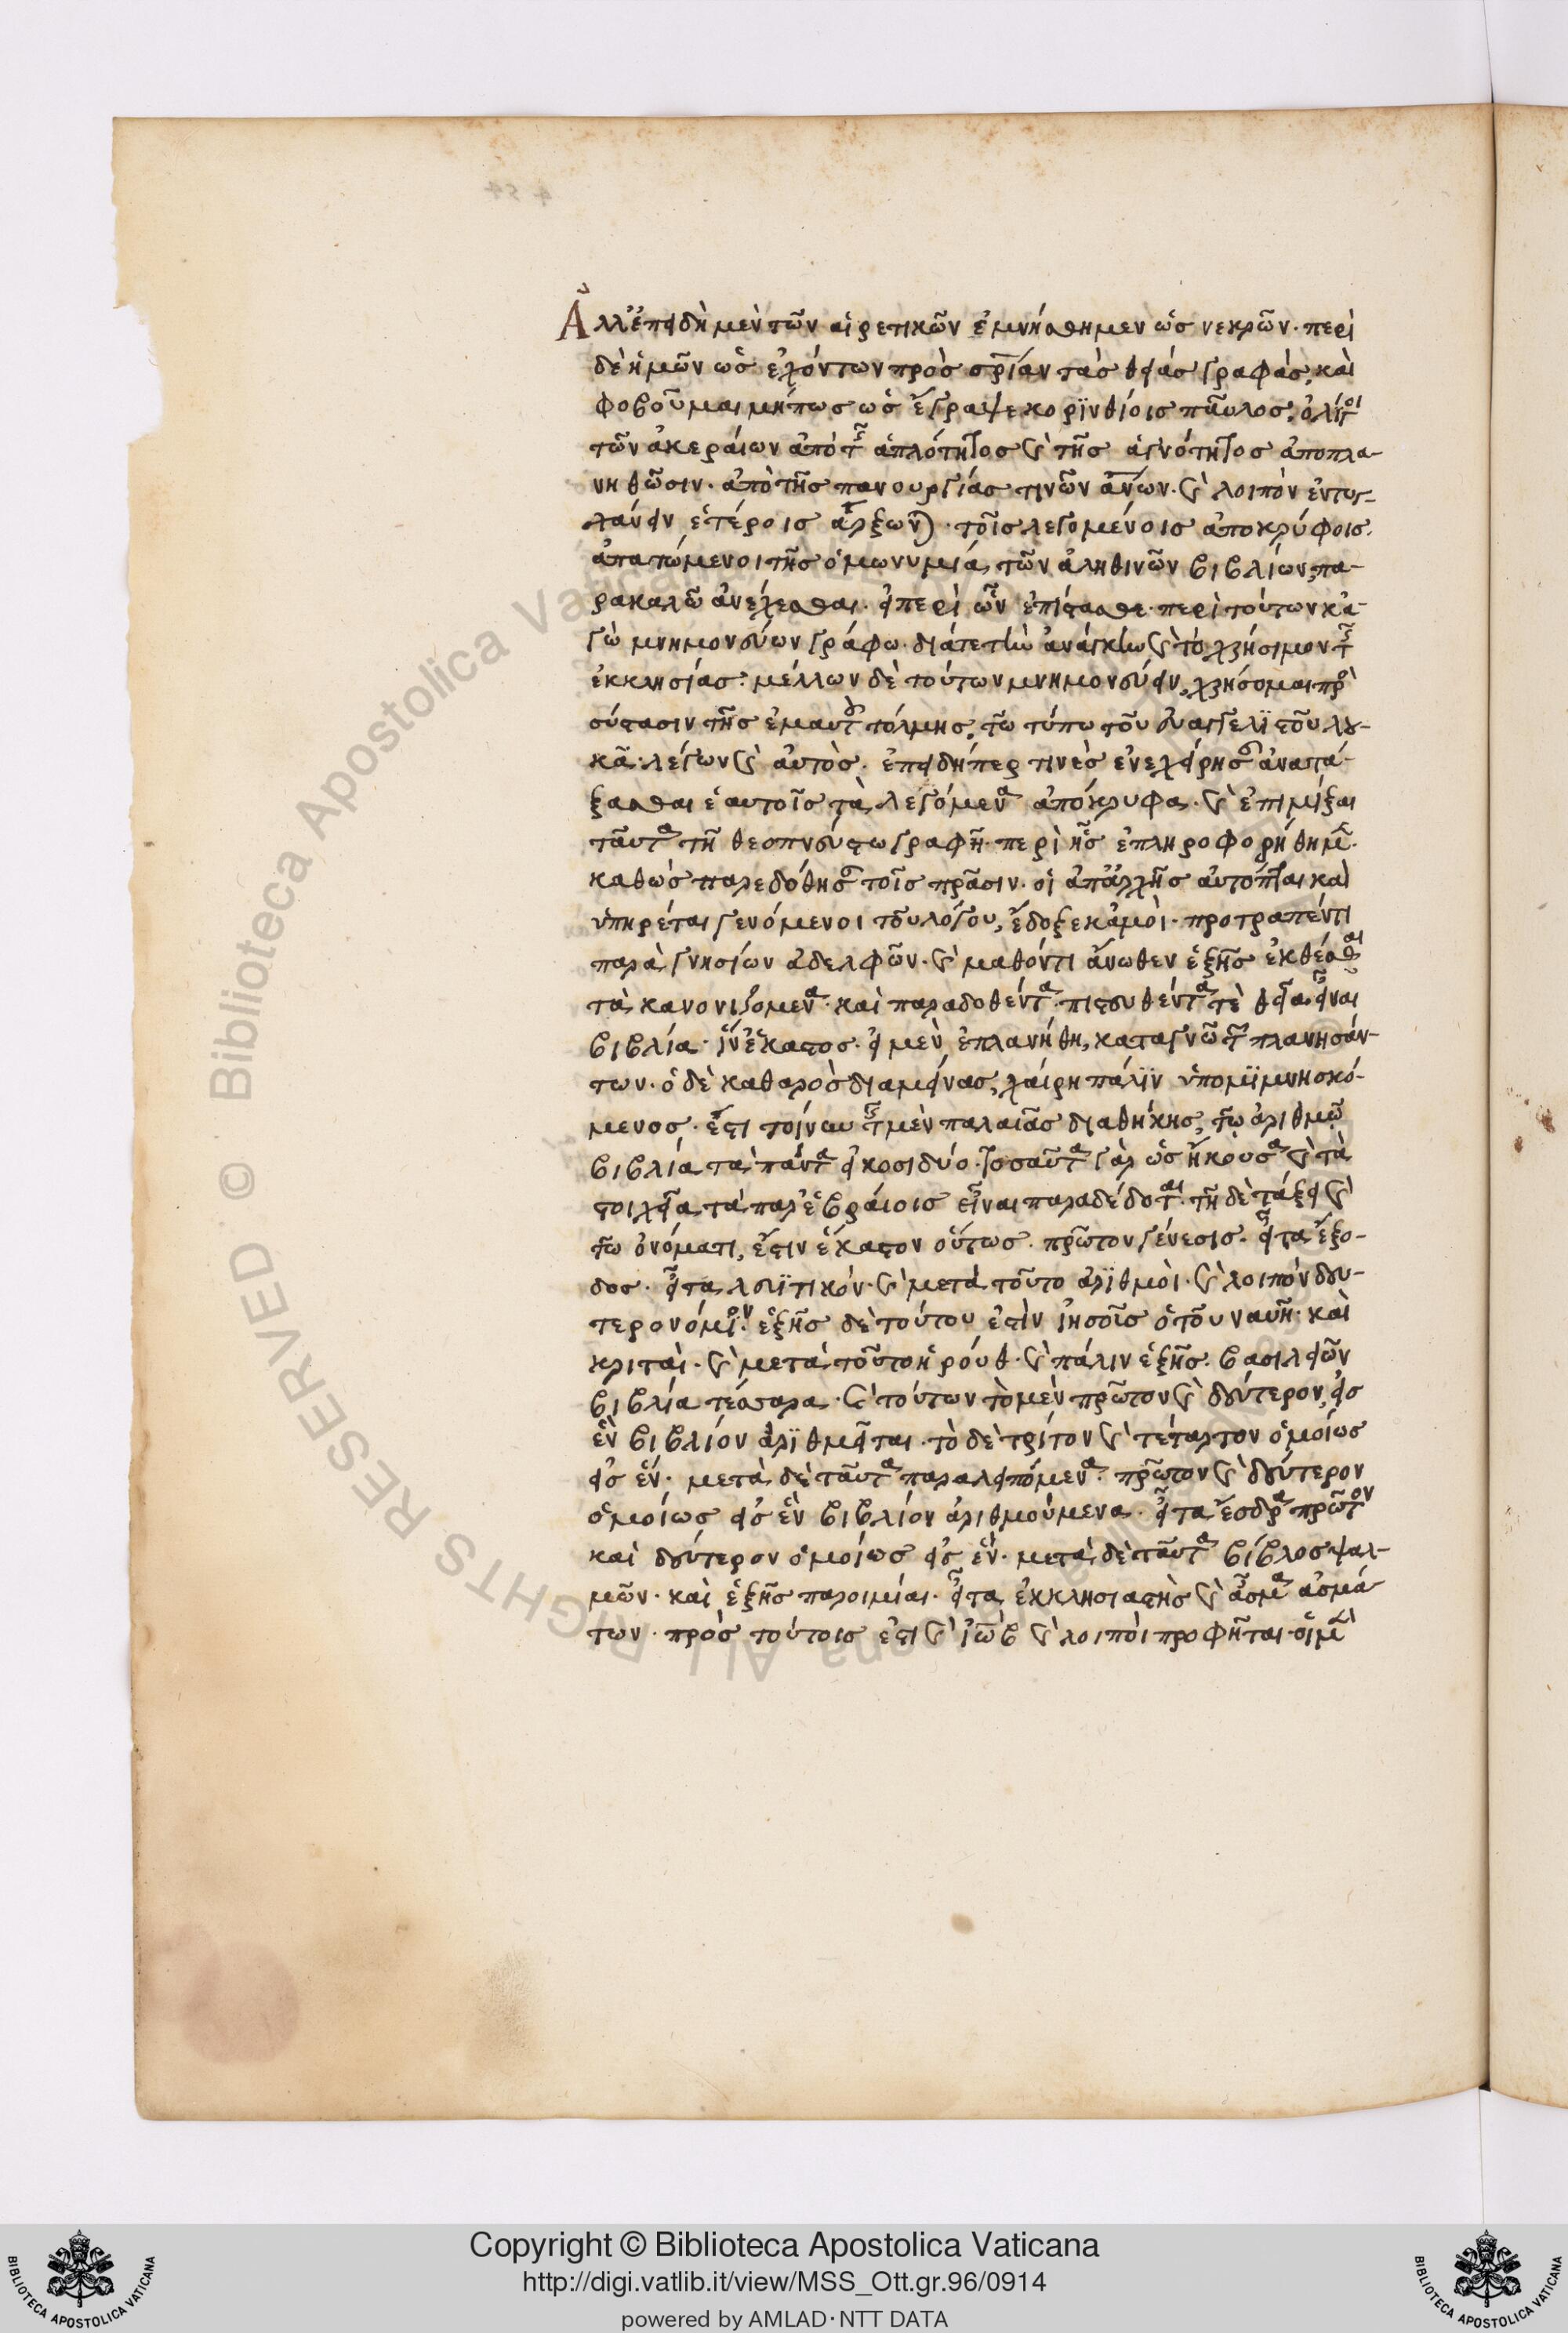 454
Ἀλλ' ἐπειδὴ μὲν τῶν αἱρετικῶν ἐμνήσθημεν ὡς νεκρῶν· περὶ
δὲ ἡμῶν ὡς ἐχόντων πρὸς σ̅ρίαν τὰς θείας γραφάς, καὶ
φοβοῦμαι μήπως ὡς ἔγραψε κορϊνθίοις παῦλος, ὀλίγοι
τῶν ἀκεραίων ἀπὸ τῆς ἁπλότητος καὶ τῆς ἁγνότητος ἀποπλα-
νηθῶσιν· ἀπὸ τῆς πανουργίας τινῶν ἀ̅ν̅ων· καὶ λοιπὸν ἐντυγ-
χάνειν ἑτέροις ἄρξωνται· τοῖς λεγομένοις ἀποκρύφοις.
ἀπατώμενοι τῆς ὁμωνυμία τῶν ἀληθινῶν βιβλίων, πα-
ρακαλῶ ἀνέχεσθαι· εἰ περὶ ὧν ἐπίστασθε· περὶ τούτων κἀ-
γὼ μνημονεύων γράφω· διά τε τὴν ἀνάγκην καὶ τὸ χρήσιμον τῆς
ἐκκλησίας: μέλλων δὲ τούτων μνημονεύειν, χρήσομαι πρὸ
σύστασιν τῆς ἐμαυτοῦ τόλμης, τῶ τύπω τοῦ εὐαγγελϊστοῦ λου-
κᾶ: λέγων καὶ αὐτὸς· ἐπειδήπερ τινὲς ἐνεχείρησαν ἀνατά-
ξασθαι ἑαυτοῖς τὰ λεγόμενα ἀπόκρυφα· καὶ ἐπιμίξαι
ταῦτα τῆ θεοπνεύστω γραφῆ· περὶ ἧς ἐπληροφορήθημεν·
καθὼς παρεδόθησαν τοῖς π̅ρασιν· οἱ ἀπ' ἀρχῆς αὐτόπται καὶ
ὑπηρέται γενόμενοι τοῦ λόγου, ἔδοξε κἀμοὶ· προτραπέντι
παρὰ γνησίων ἀδελφῶν· καὶ μαθόντι ἄνωθεν ἑξῆς ἐκθέσθαι
τὰ κανονιζόμενα· καὶ παραδοθέντα· πιστευθέντα τὲ θεῖα εἶναι
βιβλία· ἵν' ἕκαστος· εἰ μὲν ἐπλανήθη, καταγνῶ τῶν πλανησάν-
των· ὁ δὲ καθαρὸς διαμείνας, χαίρη πάλϊν ὑπομϊμνησκό-
μενος· ἔστι τοίνυν τῆς μὲν παλαιᾶς διαθήκης, τῶ ἀριθμῶ
βιβλία τὰ πάντα εἰκοσιδύο· τοσαῦτα γὰρ ὡς ἤκουσα καὶ τὰ
στοιχεῖα τὰ παρ' ἑβραίοις εἶναι παραδέδοται· τῆ δὲ τάξει καὶ
τῶ ὀνόματι, ἔστιν ἕκαστον οὕτως· πρῶτον γένεσις· εἶτα ἔξο-
δος· εἶτα λευϊτικόν· καὶ μετὰ τοῦτο ἀρϊθμοὶ· καὶ λοιπὸν δευ-
τερονόμϊον: ἑξῆς δὲ τούτου ἐστὶν ἰησοῦς ὁ τοῦ ναυῆ· καὶ
κριταὶ· καὶ μετὰ τοῦτο ἡ ρούθ· καὶ πάλιν ἑξῆς· βασιλειῶν
βιβλία τέσσαρα· καὶ τούτων τὸ μὲν πρῶτον καὶ δεύτερον, εἰς
ἓν βιβλίον ἀρϊθμεῖται· τὸ δὲ τρίτον καὶ τέταρτον ὁμοίως
εἰς ἕν· μετὰ δὲ ταῦτα παραλειπόμενα· πρῶτον καὶ δεύτερον
ὁμοίως εἰς ἓν βιβλίον ἀριθμούμενα· εἶτα ἔσδρα πρῶτον
καὶ δεύτερον ὁμοίως εἰς ἕν· μετὰ δὲ ταῦτα βίβλος ψαλ-
μῶν· καὶ ἑξῆς παροιμίαι· εἶτα ἐκκλησιαστὴς καὶ ἆσμα ἀσμά-
των· πρὸς τούτοις ἐστι καὶ ἰὼβ καὶ λοιποὶ προφῆται· οἱ μὲν
Biblioteca Apostolica Vaticana
ALL RIGHTS RESERVED ©
Copyright © Biblioteca Apostolica Vaticana
http://digi.vatlib.it/view/MSS_Ott.gr.96/0914
powered by AMLAD·NTT DATA
BIBLIOTECA APOSTOLICA VATICANA
BIBLIOTECA APOSTOLICA VATICANA